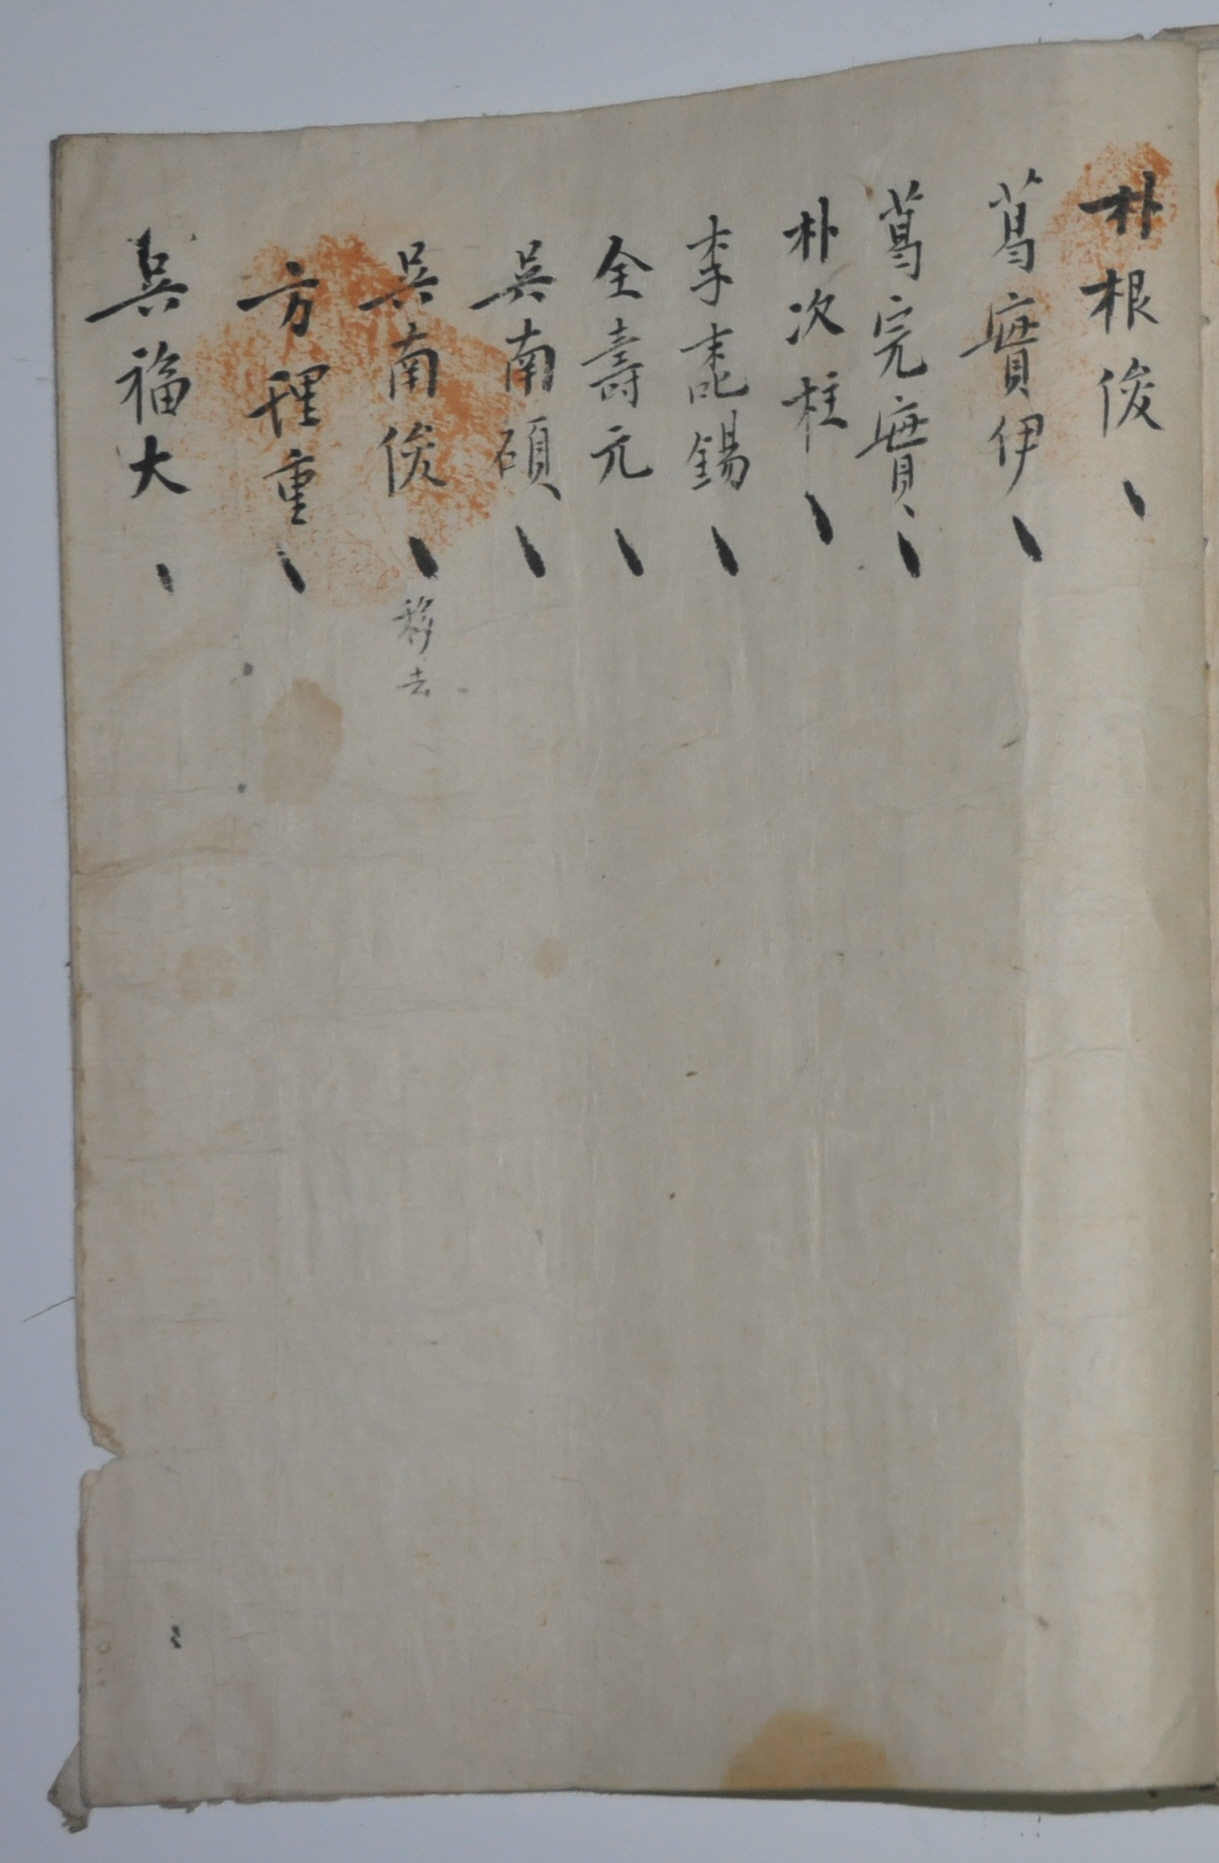 朴根俊
葛實伊
葛完實
朴次柱
李唜錫
全壽元
吳南碩
吳南俊 移去
方理重
吳福大